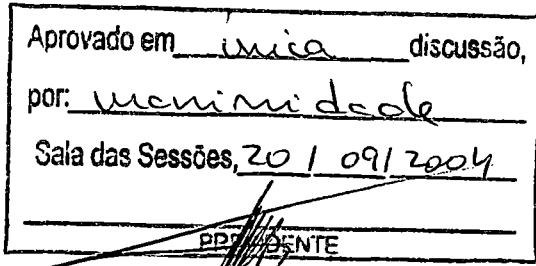 Aprovado em unica discussão,
por: unanimidade
Sala das Sessões, 20 / 09 / 2004
PRESIDENTE